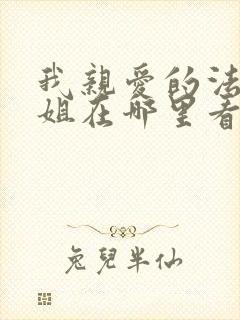 我親愛的法
姐在哪里看
兔兒半仙